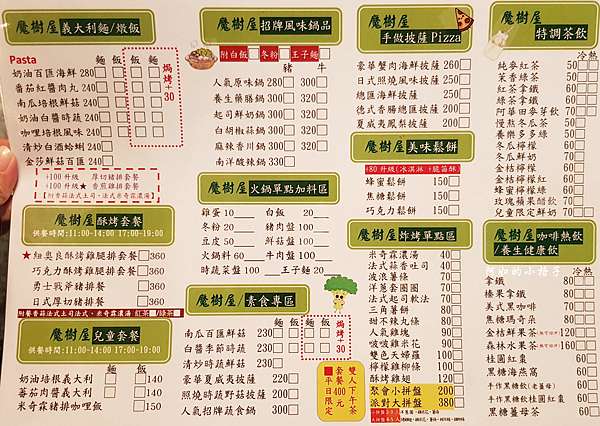 魔樹屋 義大利麵/燉飯
Pasta 麵 飯 麵 飯
奶油百匯海鮮 280
番茄紅醬肉丸 240
南瓜培根鮮菇 240
奶油白醬時蔬 240
咖哩培根風味 240
清炒白酒蛤蜊 240
金莎鮮菇百匯 240
焗烤+30
+100升級 厚切豬排套餐
+100升級★ 香煎雞排套餐
【附餐香蒜法式土司、法式米奇霖濃湯】
魔樹屋 酥烤套餐
供餐時間:11:00-14:00 17:00-19:00
★紐奧良酥烤雞腿排套餐 360
巧克力酥烤雞腿排套餐 360
勇士戰斧豬排套餐 360
日式厚切豬排套餐 360
附餐香蒜法式土司法式、米奇霖濃湯 紅茶/綠茶
魔樹屋 兒童套餐
供餐時間:11:00-14:00 17:00-19:00
奶油培根義大利 140
番茄肉醬義大利 140
米奇霖豬排咖哩飯 150
魔樹屋 招牌風味鍋品
附白飯 冬粉 王子麵
豬 牛
人氣原味鍋 280
養生藥膳鍋 300
起司鮮奶鍋 300
白胡椒蒜鍋 300
麻辣香川鍋 300
南洋酸辣鍋 330
魔樹屋 火鍋單點加料區
雞蛋 10 白飯 20
冬粉 20 豬肉盤 100
豆皮 50 鮮菇盤 100
火鍋料 60 牛肉盤 100
時蔬菜盤 100 王子麵 20
魔樹屋 素食專區
麵 飯 麵 飯
南瓜百匯鮮菇 230
白醬季節時蔬 230
清炒時蔬鮮菇 230
豪華夏威夷披薩 220
照燒時蔬野菇披薩 220
人氣招牌蔬食鍋 300
焗烤+30
雙人下午茶
套餐400元
平日限定
魔樹屋
手做披薩Pizza
豪華蟹肉海鮮披薩 260
日式照燒風味披薩 260
總匯海鮮披薩 260
德式香腸總匯披薩 200
夏威夷鳳梨披薩 200
魔樹屋 美味鬆餅
+80升級(冰淇淋+脆笛酥)
蜂蜜鬆餅 150
焦糖鬆餅 150
巧克力鬆餅 150
魔樹屋 炸烤單點區
米奇霖濃湯 40
法式蒜香吐司 40
波浪薯條 70
洋蔥圈圈 70
法式起司軟法 70
三角薯餅 80
甜不辣九條 80
人氣雞塊 90
啵啵雞米花 90
雙色天婦羅 100
檸檬雞柳條 100
酥烤雞翅 100
聚會小拼盤 200
派對大拼盤 380
魔樹屋
特調茶飲
冷 熱
純麥紅茶 50
茉香綠茶 50
紅茶拿鐵 60
綠茶拿鐵 60
阿華田麥芽飲 70
慢熬冬瓜茶 50
養樂多多綠 50
冬瓜檸檬 60
冬瓜鮮奶 70
金桔檸檬 60
金桔檸檬紅 60
蜂蜜檸檬綠 60
玫瑰蘋果醋飲 60
兒童限定鮮奶 60
魔樹屋 咖啡熱飲
/養生健康飲
冷 熱
拿鐵 80
榛果拿鐵 80
美式黑咖啡 80
焦糖瑪奇朵 80
金桔鮮果茶 120
森林水果茶 160
桂圓紅棗 80
黑糖海燕窩 80
手作黑糖飲(老薑母) 80
手作黑糖飲桂圓紅棗 80
黑糖薑母茶 80